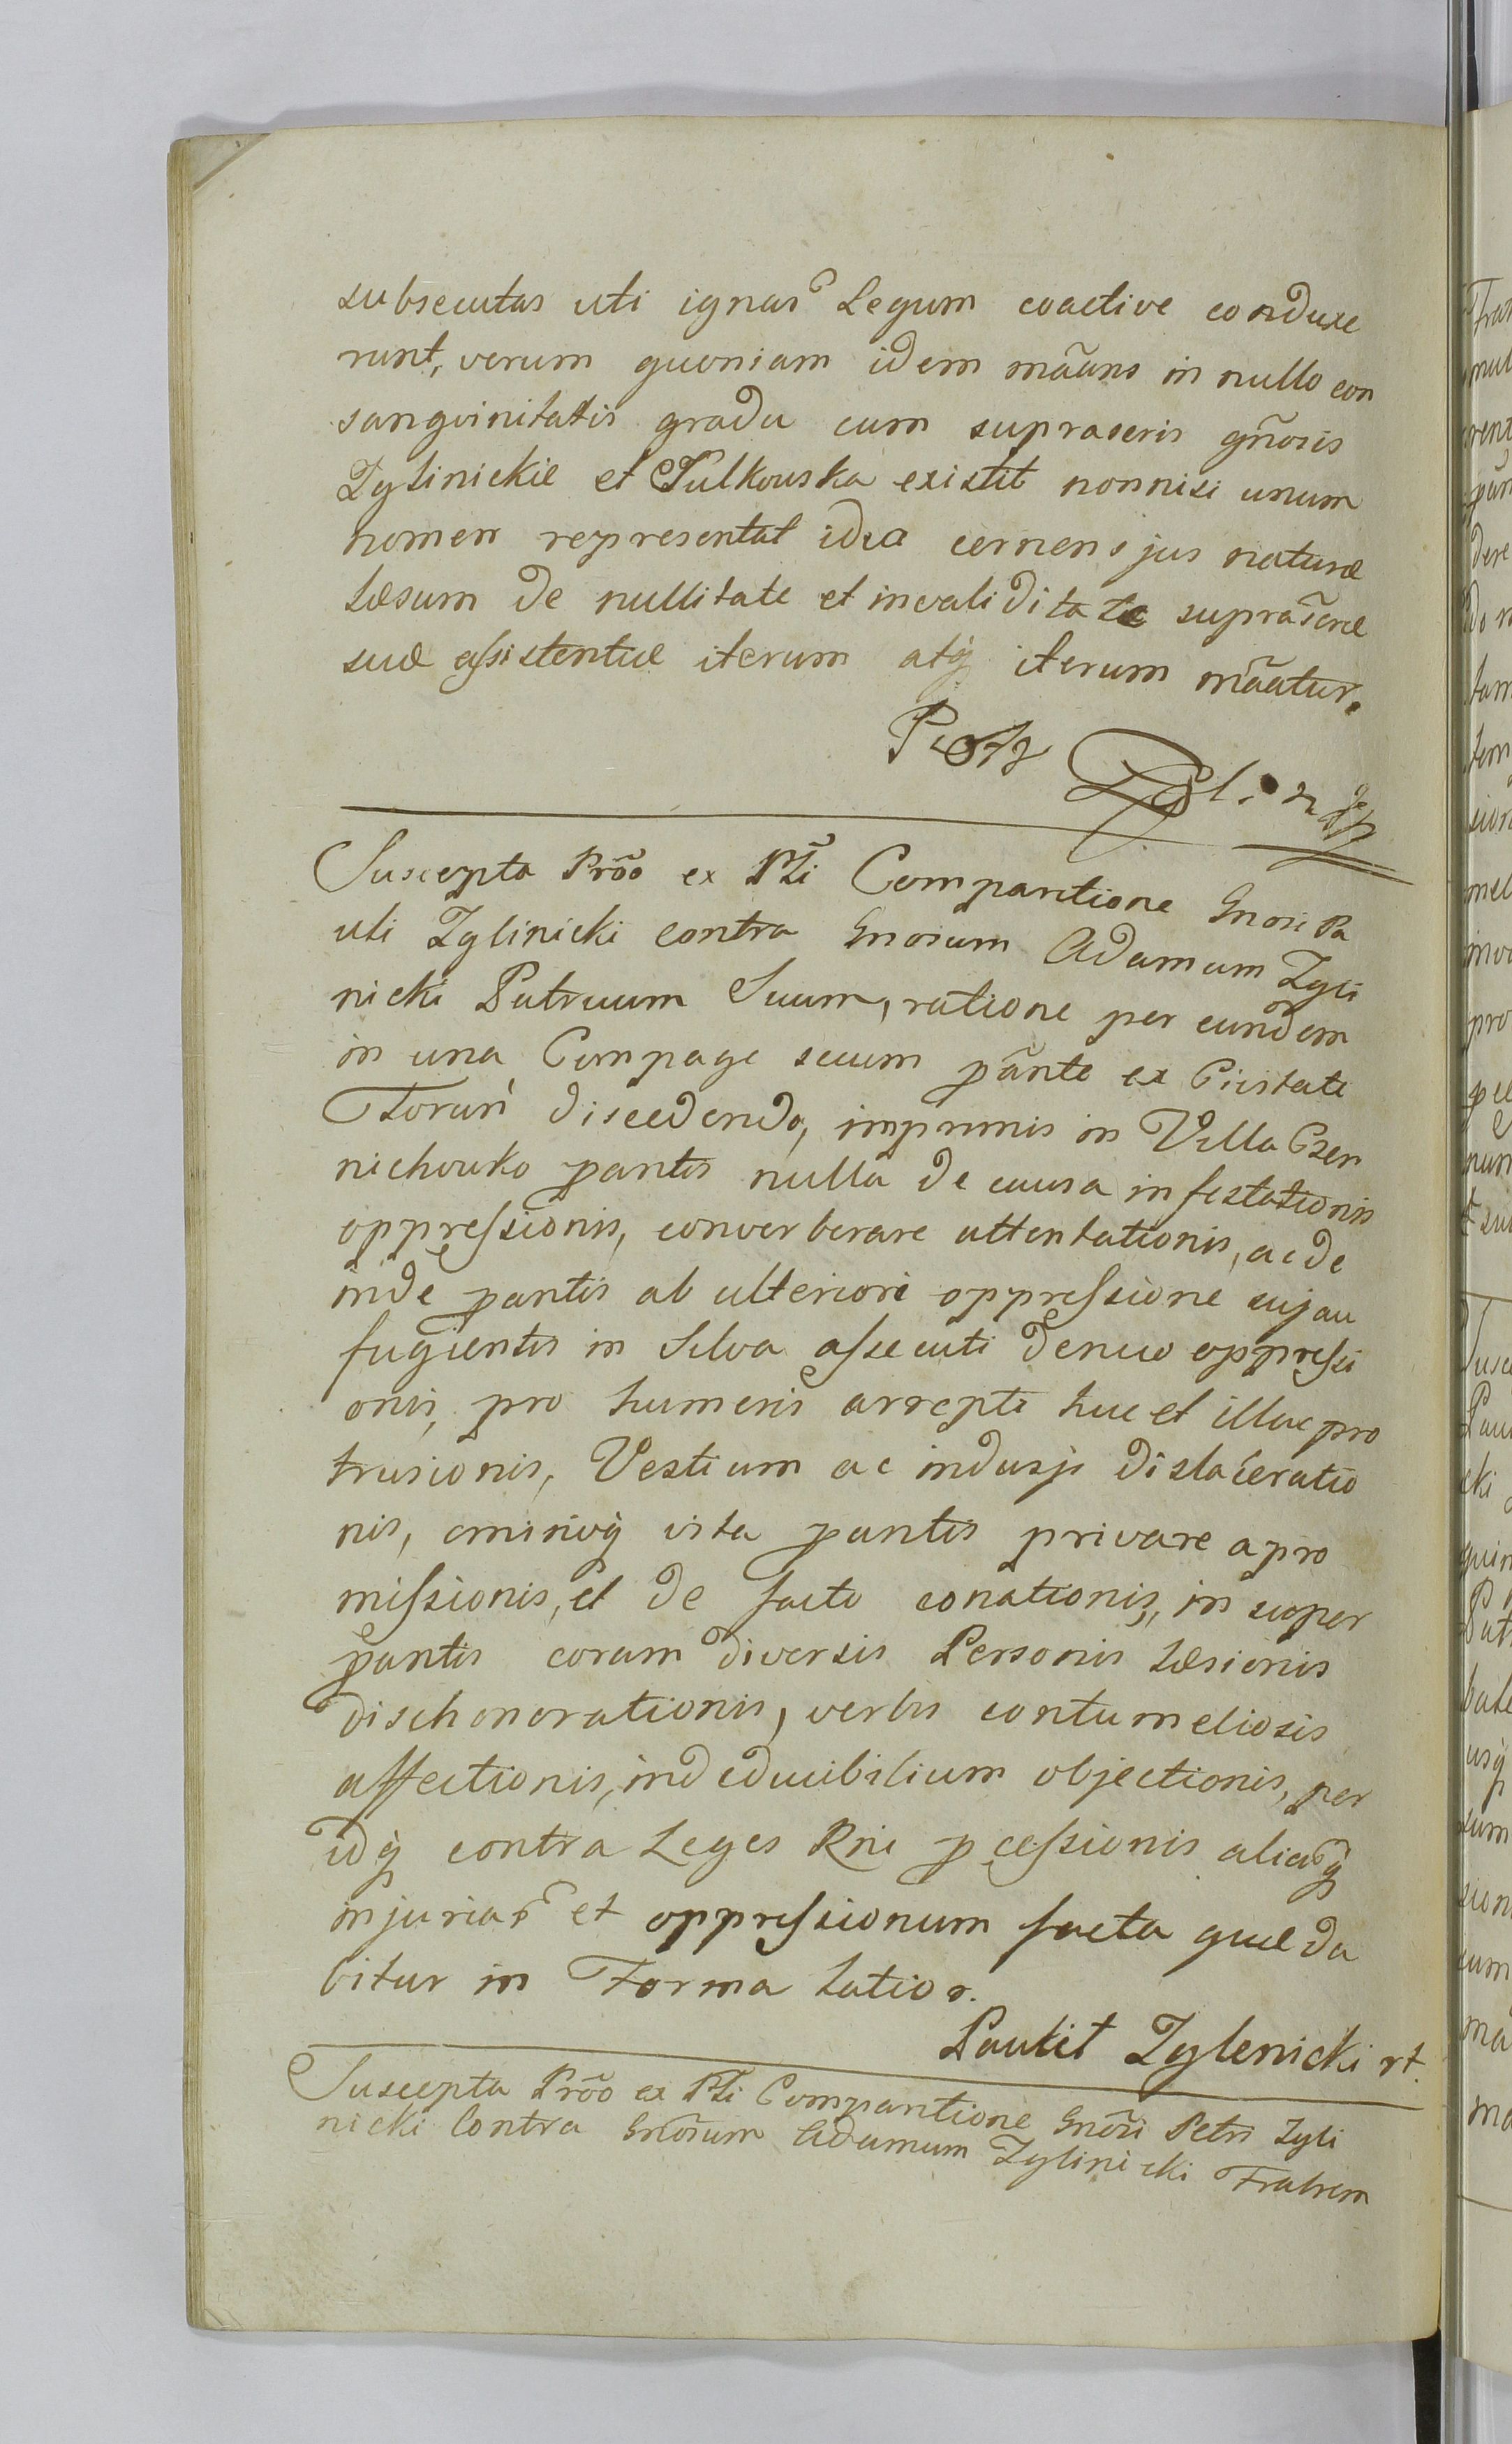 subsecutas uti ignar Legum coactive conduxe
runt, verum quoniam idem mãans in nullo con
sangvinitatis gradu cum suprascris gñosis
Zylinickie et Tulkouska existit nonnisi unum
nomen representat idea cernens jus naturæ
læsum de nullitate et invaliditate suprascræ
suæ assistentiæ iterum atq̃ iterum mãatur.
Piotr
Suscepta Prõo ex Pti Comparitione Gnosi Pa
uli Zylinicki contra Gnosum Adamum Zyli
nicki Patruum Suum, ratione per eundem
in una Compage secum pãnte ex Civitate
Toruń discedendo, imprimis in Villa Czer
nichouko pantis nulla de causa infestationis
oppressionis, converberare attentationis, ac de
inde pantis ab ulteriori oppressione
fugientis in Silva assecuti denuo oppressi
onis, pro humeris arrepti huc et illuc pro
trusionis, Vestium ac indusji dislaceratio
nis, vita pantis privare apro
missionis, et de facto conationis, in super
pantis coram diversis Personis læsionis
dischonorationis, verbis contumeliosis
affectionis, indeducibilium objectionis, per
idq̃ contra Leges Rni pcessionis aliarq̃
injuriar et oppressionum facta quæ da
bitur in Forma latior.
Paulit Zylenicki rt.
Suscepta Prõo ex Pti Comparitione Gnõsi Petri Zyli
nicki Contra Gnõsum Adamum Zylinicki Fratrem